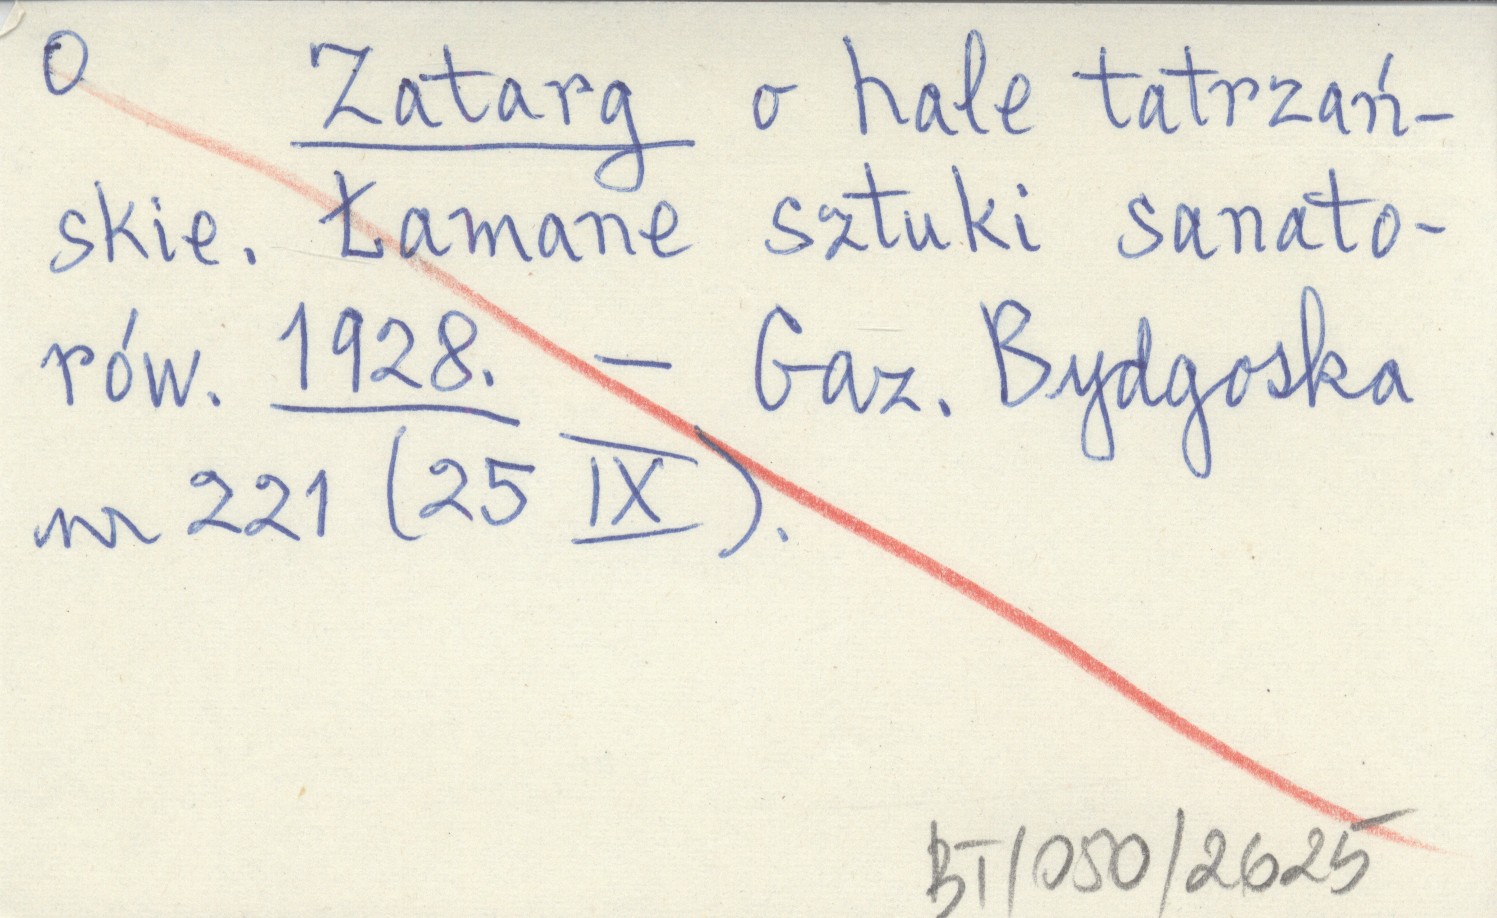 O Zatarg o hale tatrzań-
skie. Łamane sztuki sanato-
rów. 1928. – Gaz. Bydgoska
nr 221 (25 IX).
BT/050/2625